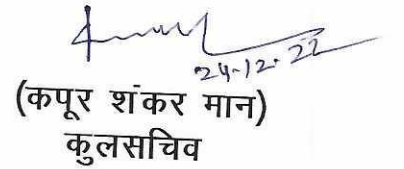 24-12-22
(कपूर शंकर मान)
कुलसचिव